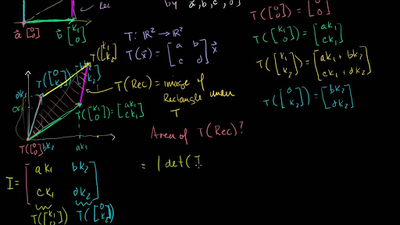 Rec
by a, b, c, d
a [0 0] b [k₁ 0]
T: ℝ² → ℝ²
T(x) = [a b c d] x
T([0 0]) = [0 0]
T([k₁ 0]) = [ak₁ ck₁]
T([k₁ k₂]) = [ak₁ + bk₂ ck₁ + dk₂]
T([0 k₂]) = [bk₂ dk₂]
T([k₁ k₂])
dk₂ T([0 k₂])
T(Rec) = image of
Rectangle under
T
ck₁
T([k₁ 0]) = [ak₁ ck₁]
T([0 0]) bk₂ ak₁
Area of T(Rec)?
I = [ak₁ bk₂ ck₁ dk₂]
= | det(I
T([k₁ 0]) T([0 k₂])